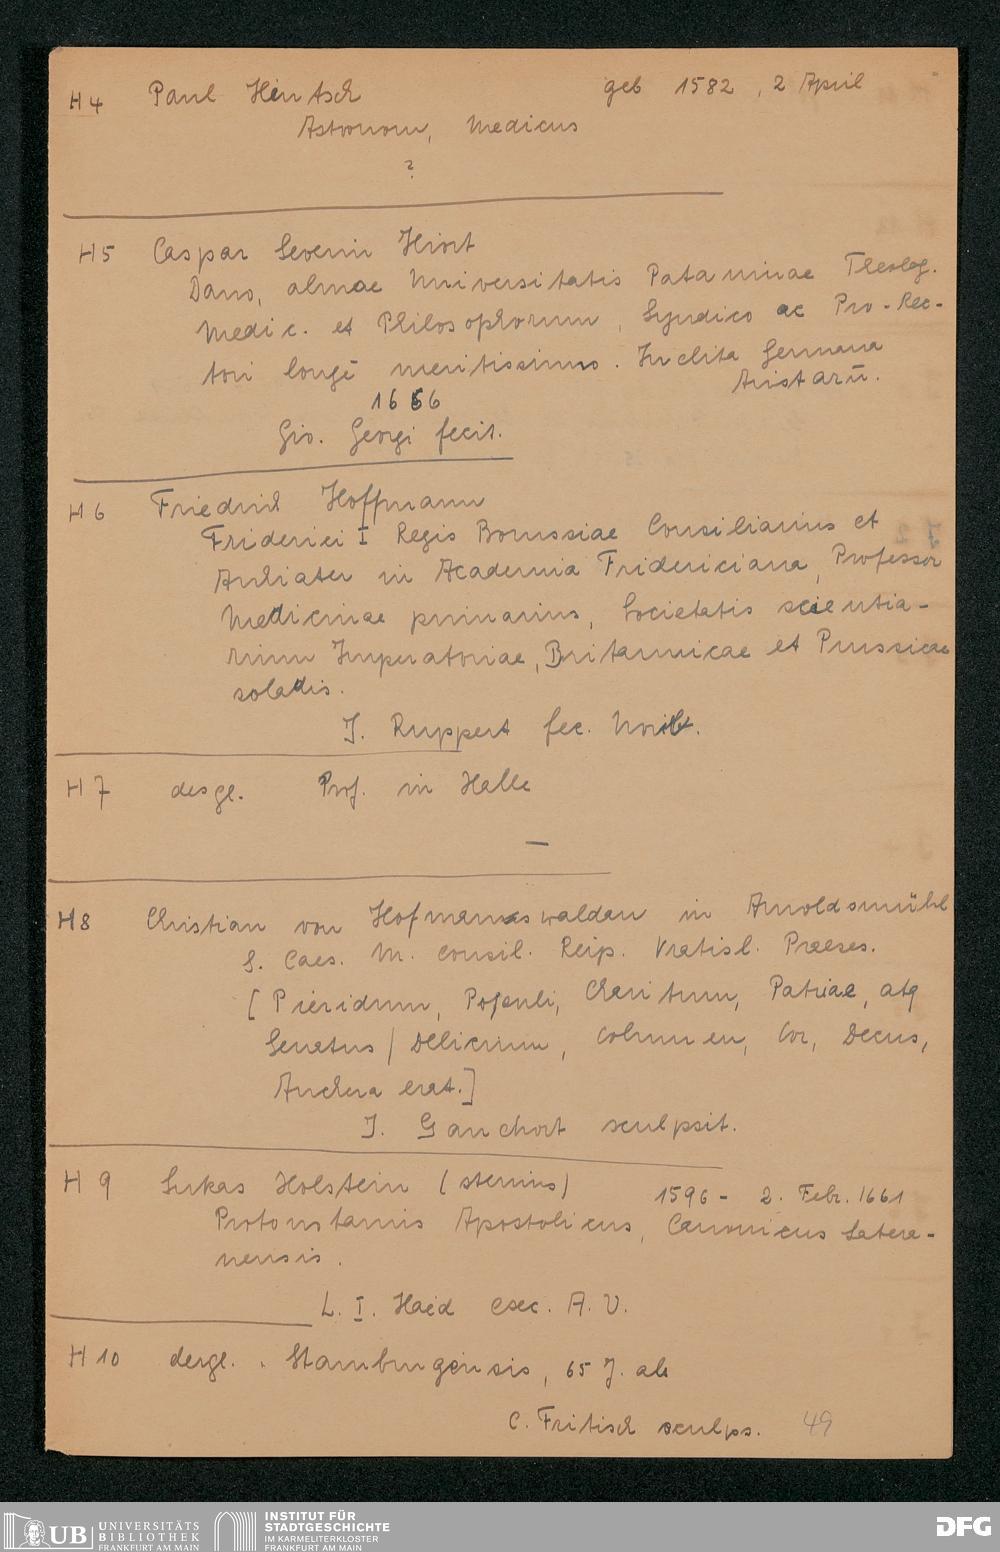 H4 Paul Hentsch geb 1582, 2 April
Astronom, Medicus
?
H5 Caspar Severin Hiort
Dano, almae Universitatis Pataminae Theolog.
Medic. et Philosophorum, Syndico ac Pro-Rec-
tori longē meritissimo. Inclita Germana
Aristarū.
1656
Gio. Georgi fecit.
H6 Friedrich Hoffmann
Friderici I Regis Borussiae Consiliarius et
Archiater in Academia Fridericiana, Professor
Medicinae primarius, Societatis scientia-
rum Imperatoriae, Britannicae et Prussicae
sodalis.
J. Ruppert fec. Norib.
H7 desgl. Prof. in Halle
—
H8 Christian von Hofmannswaldau in Arnoldsmühl
S. Caes. M. Consil. Reip. Vratisl. Praeses.
[Pieridum, Populi, Charitum, Patriae, atq
Senatus / Delicium, Columen, Cor, Decus,
Anchora erat.]
J. Ganchort sculpsit.
H9 Lukas Holstein (stenius) 1596 - 2. Febr. 1661
Protonotarius Apostolicus, Canonicus Latera-
nensis.
L. I. Haid exc. A. V.
H10 dergl. Hamburgensis, 65 J. alt
C. Fritsch sculps. 49
UB UNIVERSITÄTS
BIBLIOTHEK
FRANKFURT AM MAIN
INSTITUT FÜR
STADTGESCHICHTE
IM KARMELITERKLOSTER
FRANKFURT AM MAIN
DFG